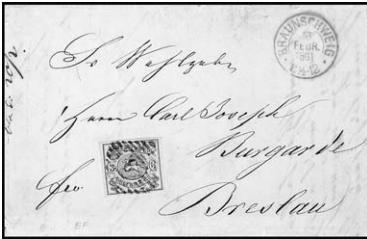 BRAUNSCHWEIG
FEBR.
Sr Wohlgeb.
Herrn Carl Joseph
Burgarde
fco.
Breslau
EF